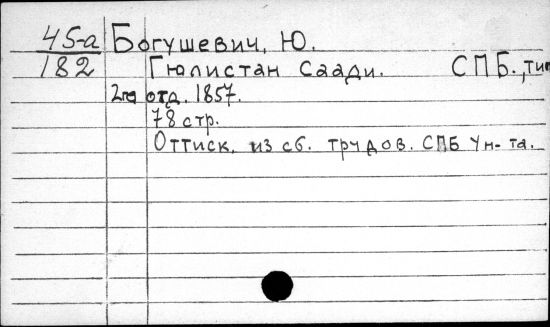 45-а Богушевич, Ю.
182 Гюлистан Саади. СПБ., тип
2го отд. 1857.
78 стр.
Оттиск. из сб. трудов. СПБ Ун-та.